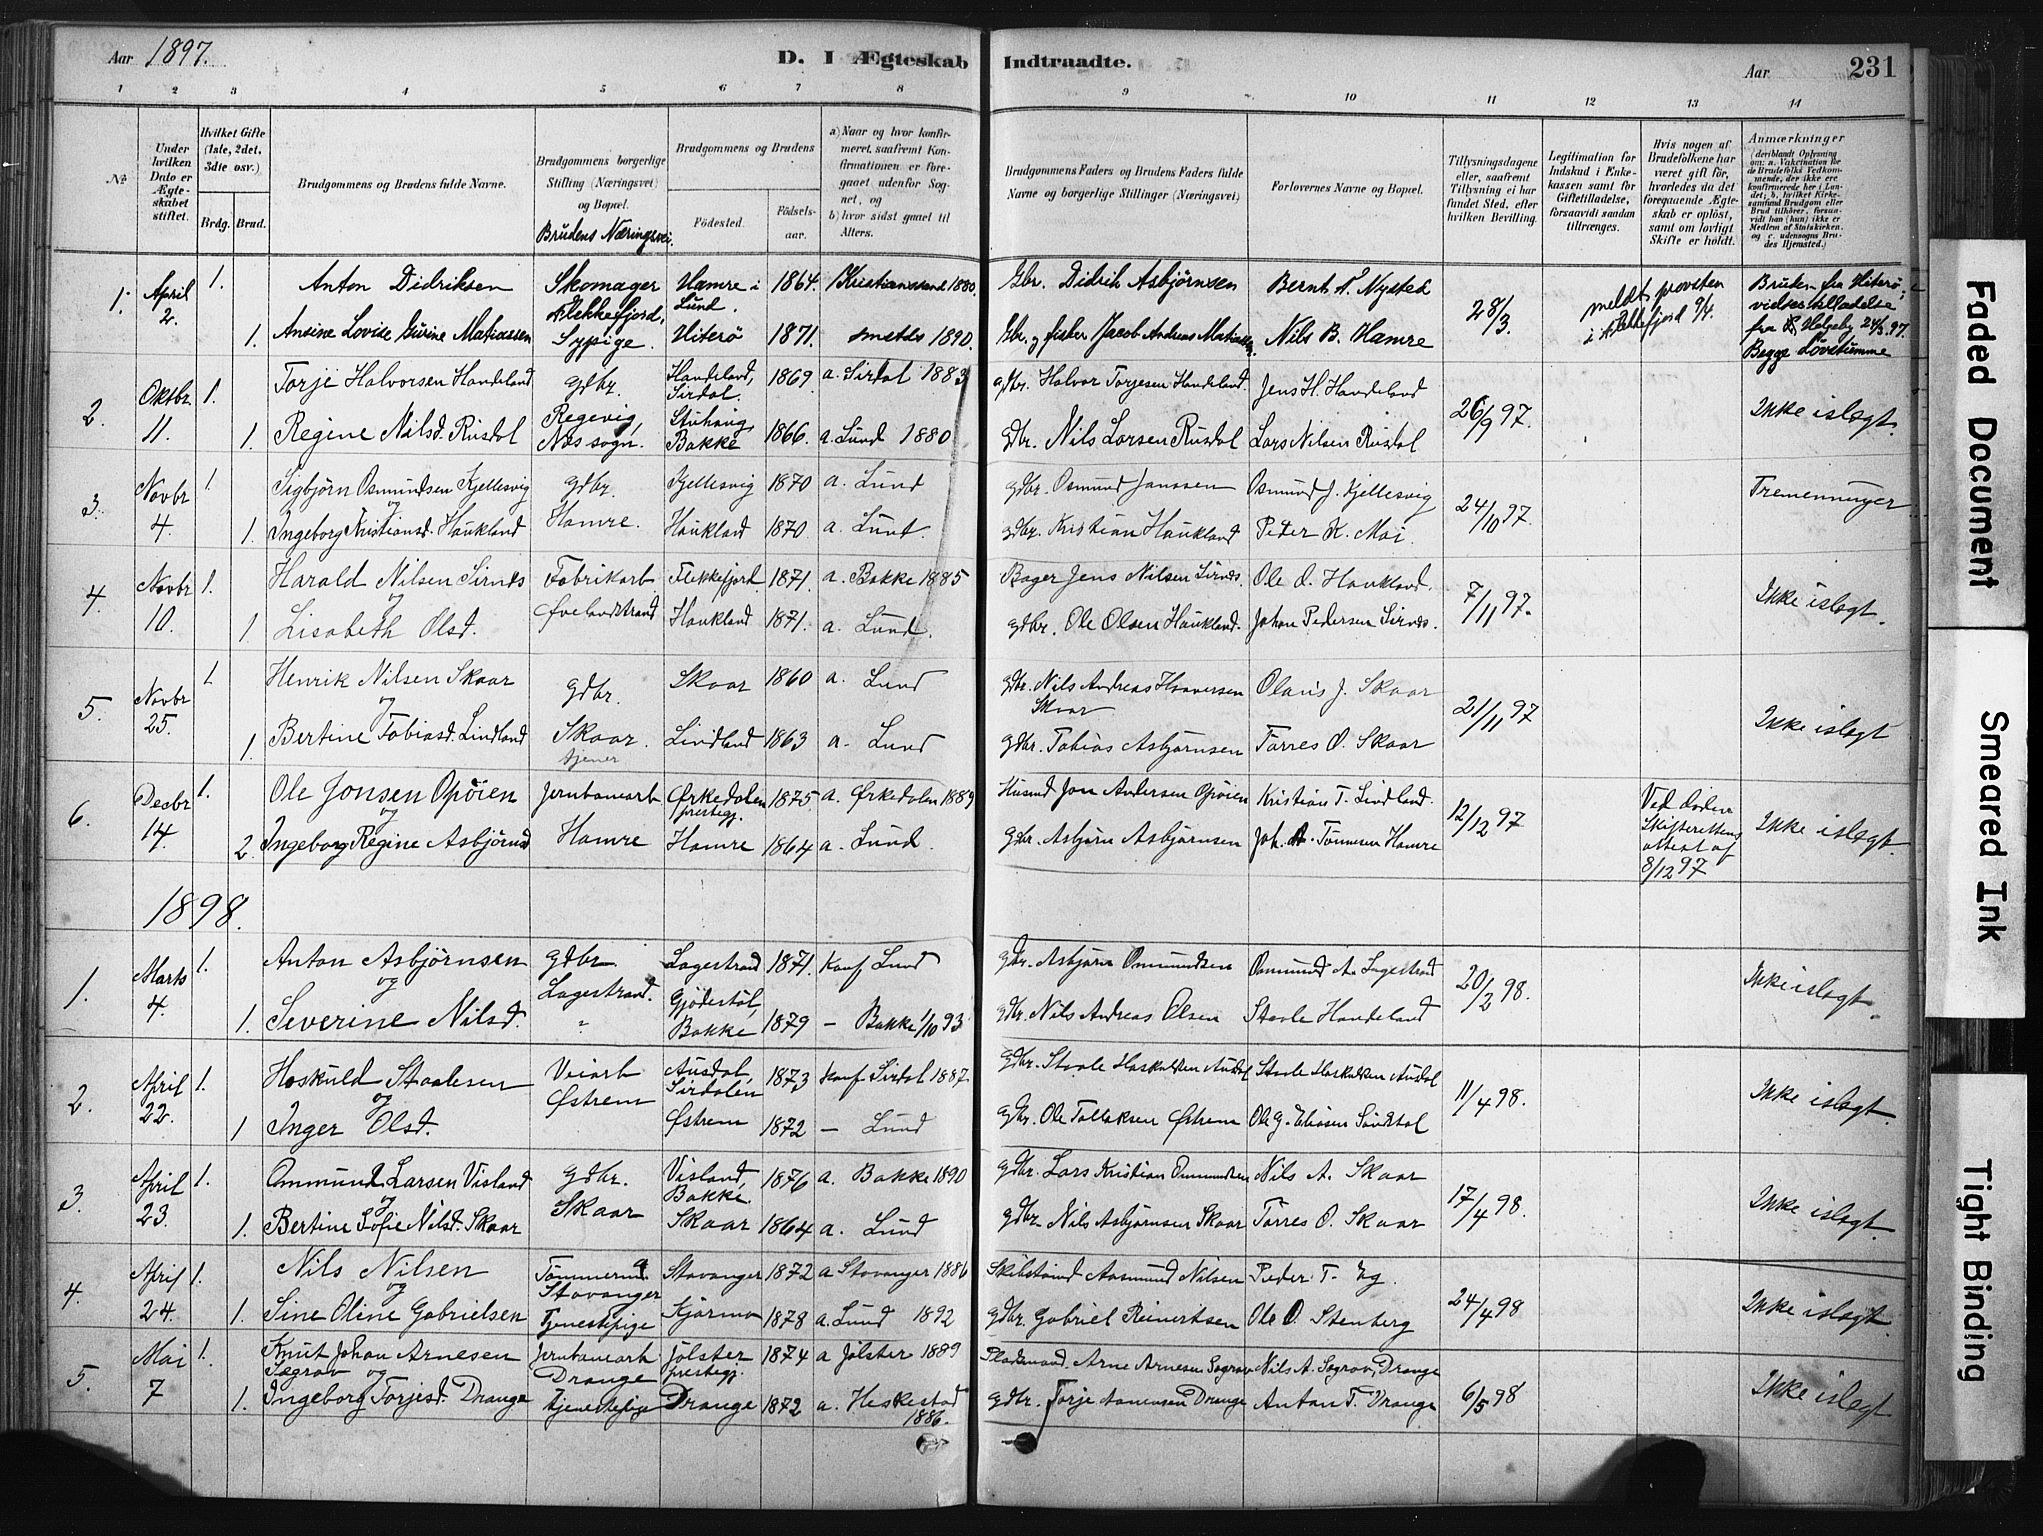 Aar 1897.
D. I Ægteskab Indtraadte.
Aar 231
1 2 3 4 5 6 7 8 9 10 11 12 13 14
№
Under hvilken Dato er Ægteskabet stiftet.
Hvilket Gifte (1ste, 2det, 3dte osv.)
Brdg. Brud.
Brudgommens og Brudens fulde Navne.
Brudgommens borgerlige Stilling (Næringsvei) og Bopæl.
Brudens Næringsvei.
Brudgommens og Brudens
Födested.
Födselsaar.
a) Naar og hvor konfirmeret, saafremt Konfirmationen er foregaaet udenfor Sognet, og
b) hvor sidst gaaet til Alters.
Brudgommens Faders og Brudens Faders fulde Navne og borgerlige Stillinger (Næringsvei)
Forlovernes Navne og Bopæl.
Tillysningsdagene eller, saafremt Tillysning ei har fundet Sted, efter hvilken Bevilling.
Legitimation for Indskud i Enkekassen samt for Giftetilladelse, forsaavidt saadan tiltrænges.
Hvis nogen af Brudefolkene har været gift för, hvorledes da det foregaaende Ægteskab er oplöst, samt om lovligt Skifte er holdt.
Anmærkninger
(deriblandt Oplysning om: a. Vakcination for de Brudefolks Vedkommende, der ikke ere konfirmerede her i Landet; b. hvilket Kirkesamfund Brudgom eller Brud tilhörer, forsaavidt han (hun) ikke er Medlem af Statskirken. og c. udensogns Brudes Hjemsted.)
1. April 2. 1. Anton Didriksen Skomager Flekkefjord, Hamre i Lund. 1864. Kristianssand 1880. Gbr. Didrik Asbjörnsen Bernt T. Nysted 28/3. meldt provsten i Flekkefjord 9/4. Bruden fra Hiterö, vielsestilladelse fra Helgeby 24/3 97. Begge Lovestemme
1. Ansine Lovise Gurine Matiassen Sypige. Hiterö 1871. smstds 1890. Gbr. og fisker Jacob Andreas Matiassen. Nils B. Hamre
2. Oktbr. 11. 1. Torje Halvorsen Handeland gdbr. Handeland, Sirdal. 1869 a. Sirdal 1883 gdbr. Halvor Torjesen Handeland. Jens H. Handeland 26/9 97. Ikke islægt.
1. Regine Nilsd. Rusdal Regevig, Næs sogn. Stuhaug Bakke 1866. a. Lund 1880 gdbr. Nils Larsen Rusdal Lars Nilsen Rusdal
3. Novbr 4. 1. Sigbjörn Osmundsen Kjellesvig og gdbr. Kjellesvig 1870 a. Lund gdbr. Osmund Janssen Osmund J. Kjellesvig 24/10 97. Tremenninger
1. Ingeborg Kristiansd. Haukland Hamre. Haukland 1870. a. Lund. gdbr. Kristian Haukland Peter K. Moi.
4. Novbr 10. 1. Harald Nilsen Sirnes og Fabrikarb Flekkefjord. 1871. a. Bakke 1885 Bager Jens Nilsen Sirnes. Ole O. Haukland. 7/11 97. Ikke islægt.
1. Lisabeth Olsd. Øvelandstrand Haukland 1871. a. Lund. gdbr. Ole Olsen Haukland. Johan Pedersen Sirnes.
5. Novbr 25. 1. Henrik Nilsen Skaar og gdbr. Skaar 1860 a. Lund gdbr. Nils Andreas Haaversen Skaar Olaus J. Skaar 21/11 97 Ikke islægt
1. Bertine Tobiasd. Lindland Skaar. tjener Lindland 1863 a. Lund gdbr. Tobias Asbjörnsen Torres O. Skaar
6. Decbr 14. 1. Ole Jonsen Opöien og Jernbanearb Ørkedalen prestegj. 1875 a. Ørkedalen 1889 Husmd Jon Andersen Opöien Kristian T. Lindland. 12/12 97 Ved döden Skifterettens attest af 8/12 97 Ikke islægt.
2. Ingeborg Regine Asbjörnsd Hamre Hamre 1864 a. Lund. gdbr. Asbjörn Asbjörnsen Joh. A. Tönnesen Hamre
1898.
1. Marts 4. 1. Anton Asbjörnsen og gdbr Lagestrand. Lagestrand 1871. Konf Lund gdbr. Asbjörn Osmundsen Osmund A. Lagestrand 20/2 98. Ikke islægt.
1. Severine Nilsd. " Gjödestöl, Bakke 1879 — Bakke 1/10 93 gdbr. Nils Andreas Olsen Staale Handeland
2. April 22. 1. Hoskuld Staalesen og Veiarb Østrem Ausdal, Sirdalen 1873 Konf Sirdal 1887 gdbr. Staale Hoskuldsen Ausdal Staale Hoskuldsen Ausdal 11/4 98. Ikke islægt.
1 Inger Olsd. Østrem 1872 — Lund gdbr. Ole Tollaksen Østrem Ole G. Eliasen Sandtal
3. April 23. 1. Ommund Larsen Visland og gdbr. Skaar Visland, Bakke. 1876 a. Bakke 1890 gdbr. Lars Kristian Ommundsen Nils A. Skaar 17/4 98. Ikke islægt.
1. Bertine Sofie Nilsd. Skaar Skaar 1864 a. Lund gdbr. Nils Asbjörnsen Skaar Torres O. Skaar
4. April 24. 1. Nils Nilsen og Tömmermd Stavanger Stavanger 1872 a Stavanger 1886 Skibstömd Aasmund Nilsen Peder T. Eg. 24/4 98 Ikke islægt.
1. Sine Oline Gabrielsen Tjenestepige Kjörmo 1878 a. Lund 1892 gdbr. Gabriel Reinertsen Ole O. Stenberg
5. Mai 7 1. Knut Johan Arnesen Sægrov og Jernbanearb Drange Jölster prestegj. 1874 a Jölster 1889 Pladsmand. Arne Arnesen Sægrov Nils A. Sægrov, Drange 6/5 98 Ikke islægt
1. Ingeborg Torjesd. Drange tjenestepige Drange 1872 a. Heskestad 1886. gdbr. Torje Aanensen Drange Anton T. Drange
Faded Document
Smeared Ink
Tight Binding